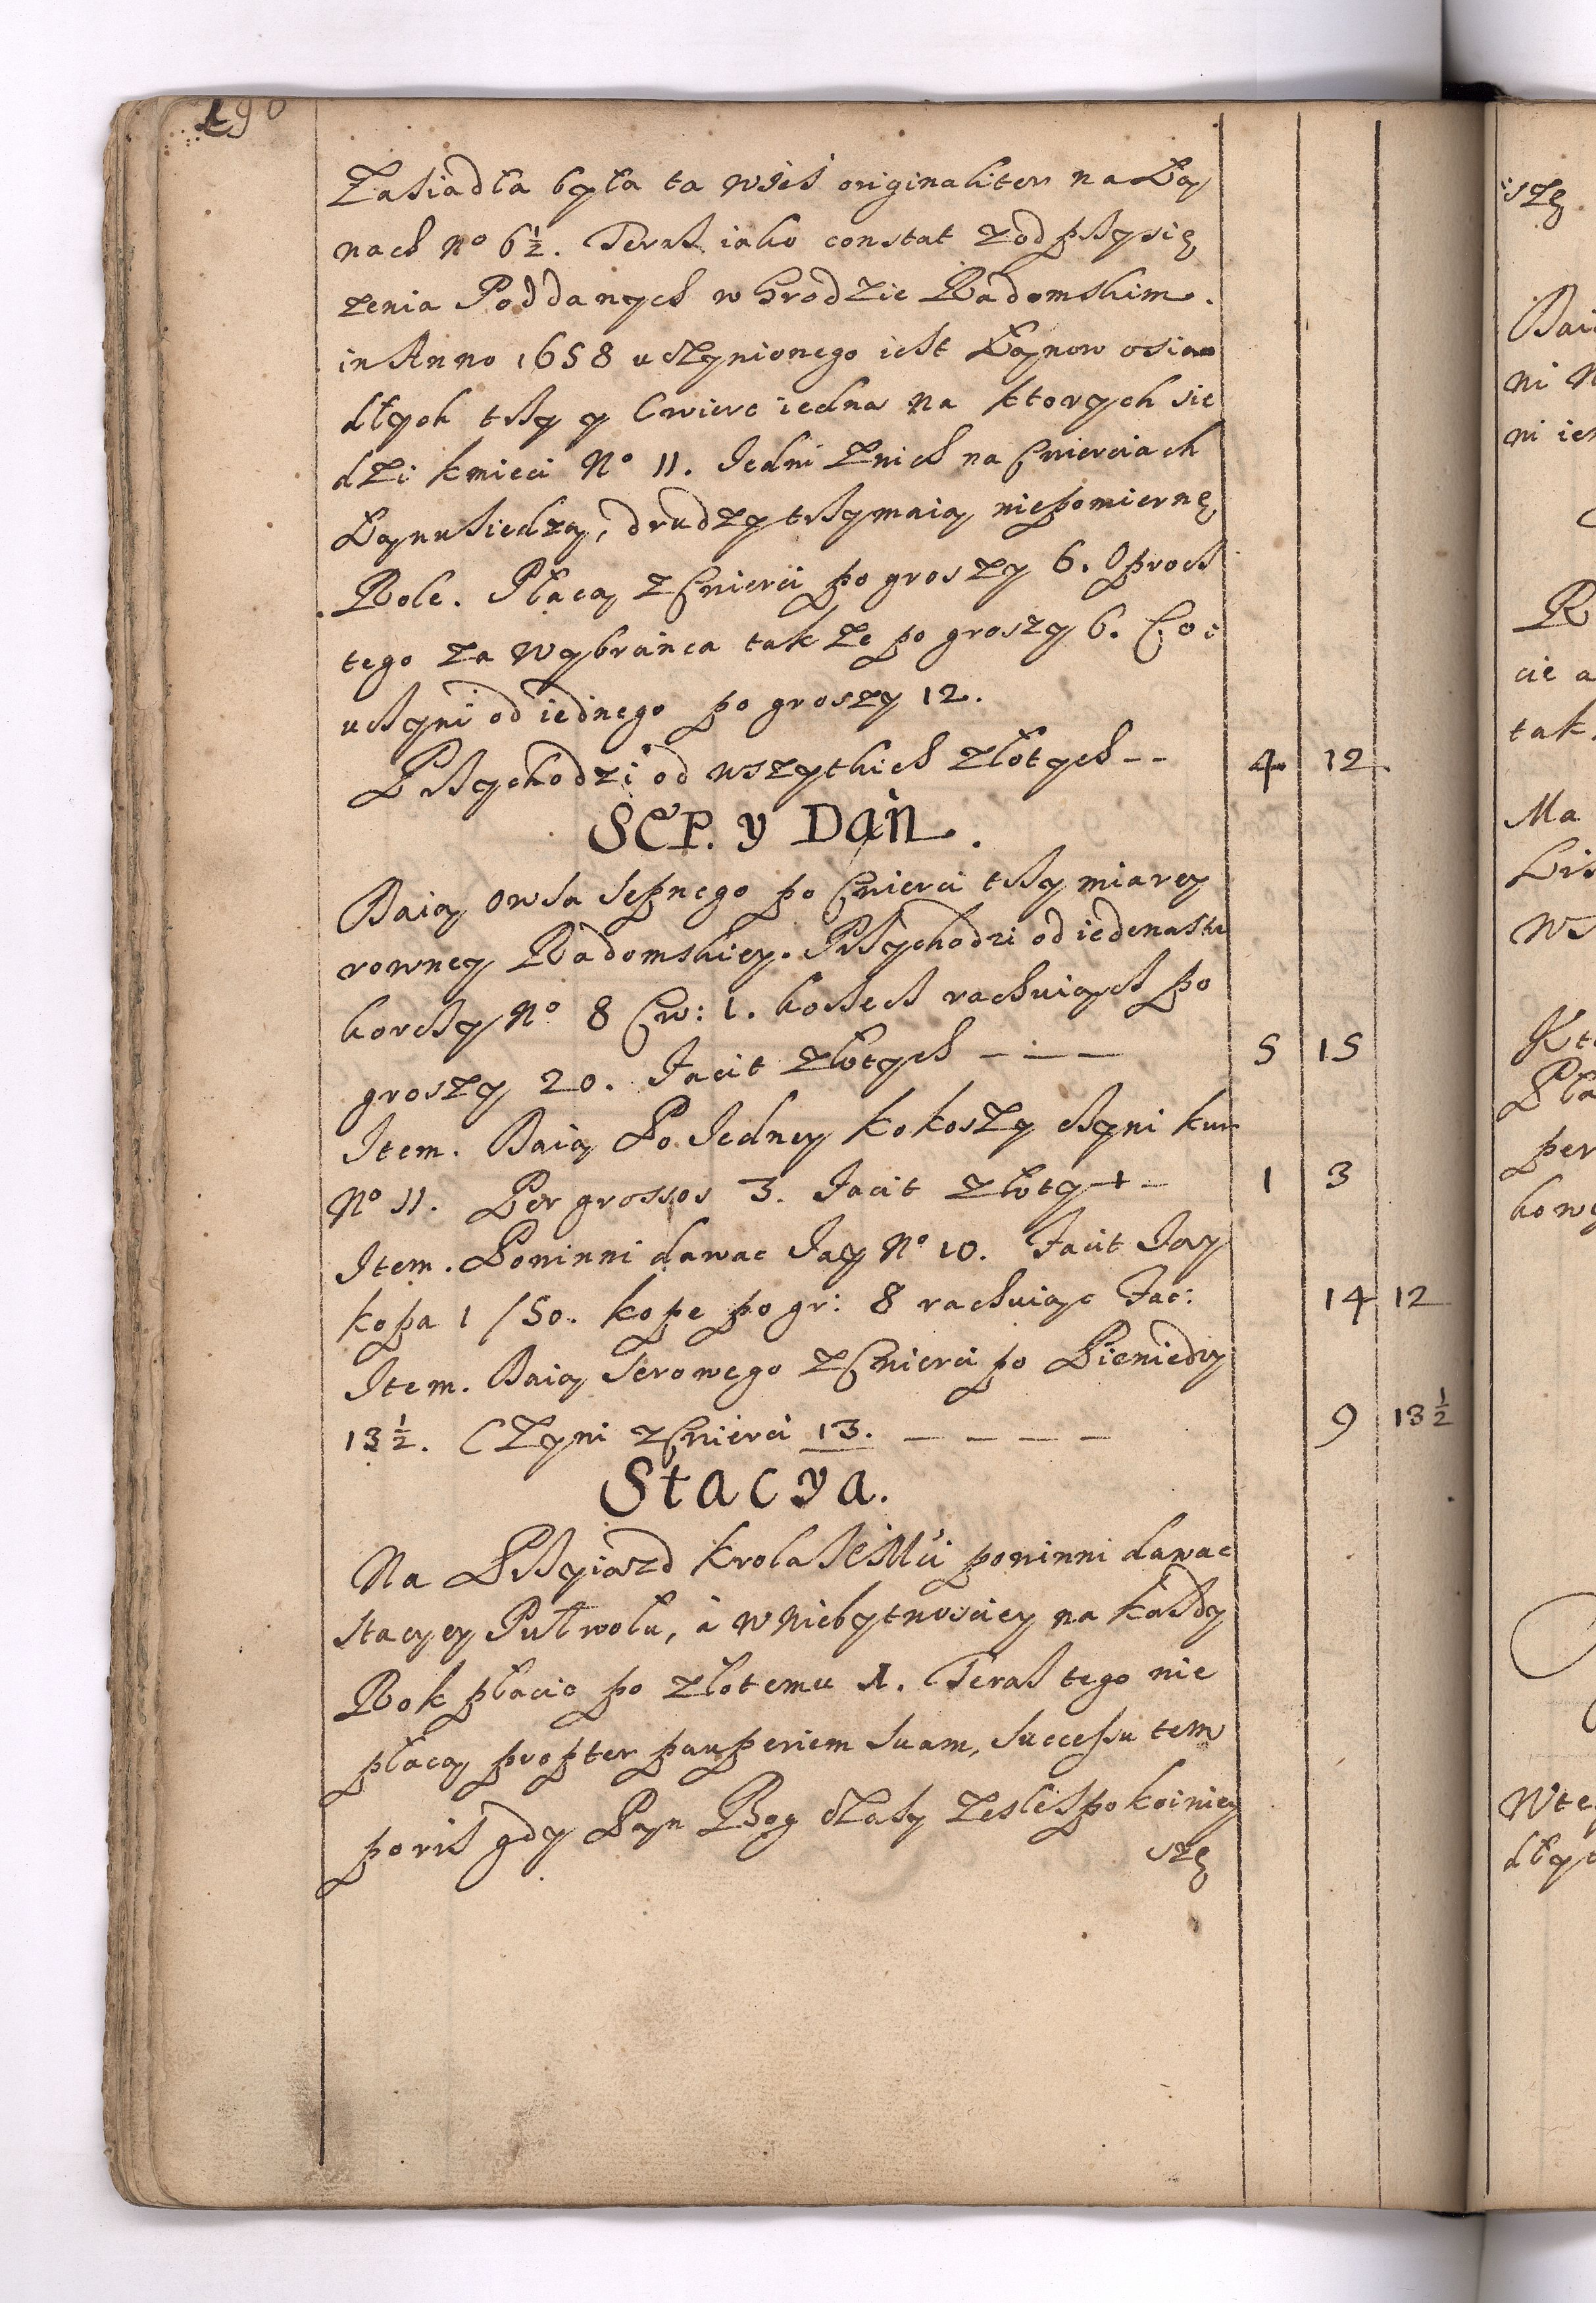 190
Zasiadła była ta wieś originaliter na Łą
nach No 6½. Teraz iako constat z odprzysię
zenia Poddanych w Grodzie Radomskim.
in Anno 1658 uczynionego iest Łąnow osia
dłych trzy y Cwierc iedna na ktorych sie
dzi kmieci No 11. Jedni znich na Cwierciach
Łąnu siedzą, drudzy trzymaią niepomiernę
Role. Płacą z Cwierci po groszy 6. Oprocz
tego za wybrańca takze po groszy 6. Co:
uczyni od iednego po groszy 12.
Przychodzi od wszytkich złotych -- 4 12
SEP. y Dań.
Daią owsa sepnego po Cwierci trzy miarey
rowney Radomskiey. Przychodzi od iedenastu
korczy No 8 Cw: 1. korzech rachuiących po
groszy 20. Facit złotych — — — 5 15
Item. Daią Po Jedney kokoszy czyni kur
No 11. Per grossos 3. Facit złoty + - 1 3
Item. Powinni dawac Jay No 10. Facit Jay
kopa 1 / 50. kope po gr: 8 rachuiąc Fac: 14 12
Item. Daią serowego z Cwierci po Pieniędzy
13½. Czyni z Cwierci 13. — — — — 9 13½
Stacya.
Na Przyiazd Krola JEMCi powinni dawac
stacyey Puł wołu, à w Niebytnosciey na kazdy
Rok płacic po złotemu 1. Teraz tego nie
płacą propter pauperiem suam, successu tem
poris gdy Pan Bog czasy zesle spokoiniey
szę
iszę
Dai
ni N
ni ie
R
cie a
tak
Ma
Lis
Ws
Kt
Pła
per
kow
Wte
dłyc